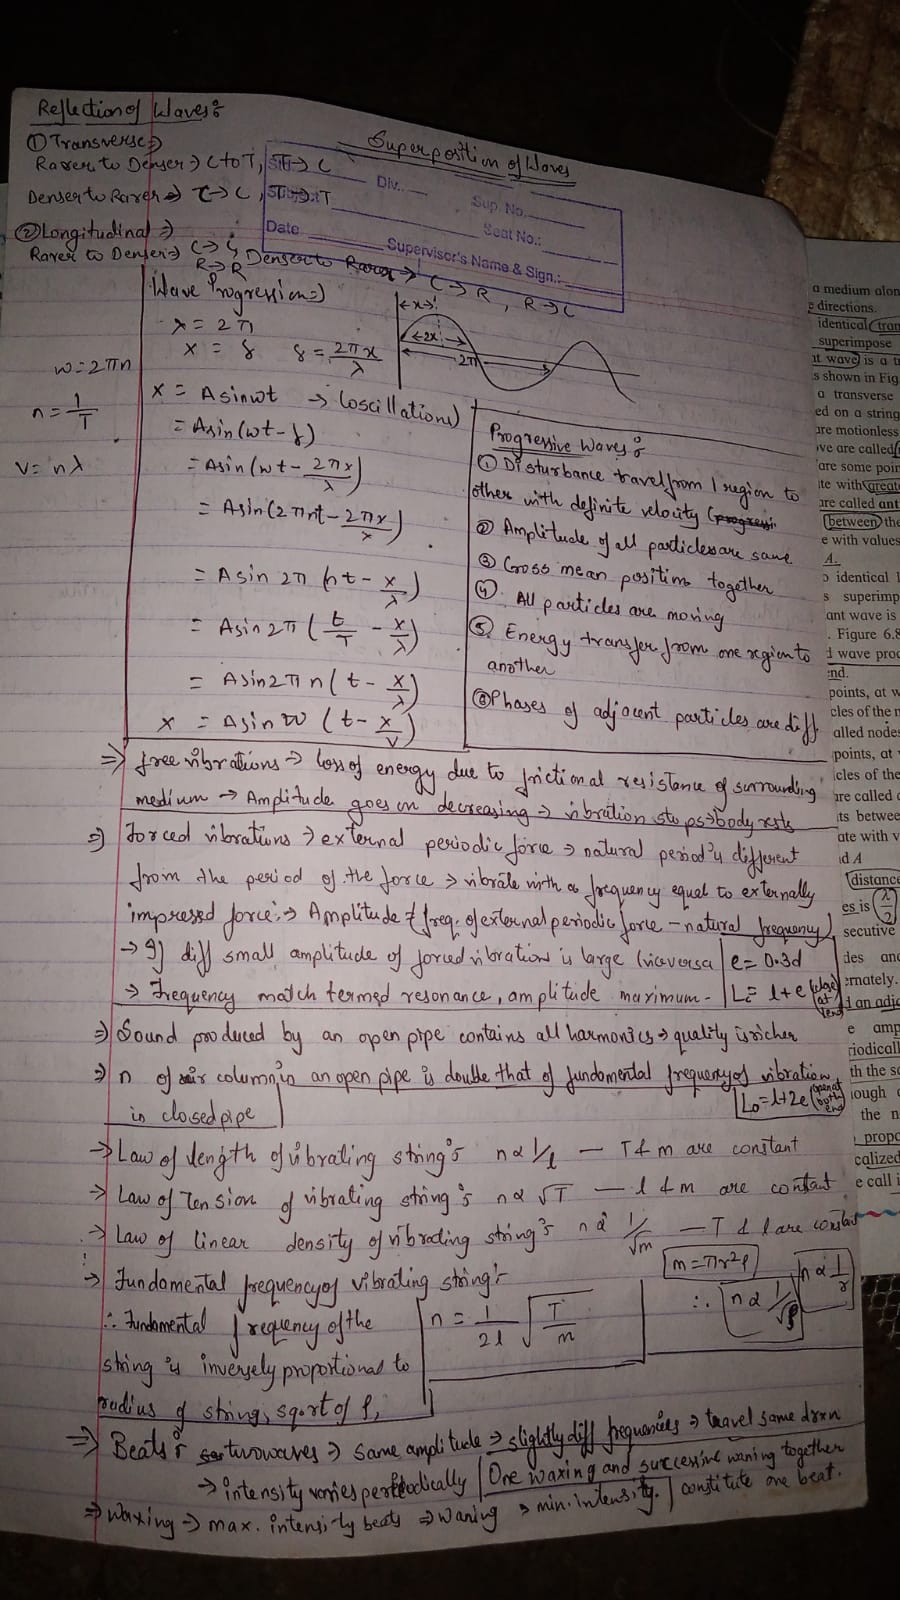 Reflection of Waves:
Superposition of Waves
① Transverse ⇒
Rarer to Denser ⇒ C to T, T → C
Denser to Rarer ⇒ C → C, T → T
② Longitudinal ⇒
Rarer to Denser ⇒ C → C, R → R
Denser to Rarer → C → R, R → C
Div.
Sup. No.
Seat No.:
Date
Supervisor's Name & Sign.:
Wave Progression ⇒
λ = 2π
x = δ δ = 2πx/λ
←x→
←2x→
2π
ω = 2πn
n = 1/T
v = nλ
x = A sin ωt → (oscillations)
= A sin (ωt - δ)
= A sin (ωt - 2πx/λ)
= A sin (2πnt - 2πx/λ)
= A sin 2π (nt - x/λ)
= A sin 2π (t/T - x/λ)
= A sin 2πn (t - x/λ)
x = A sin ω (t - x/v)
Progressive Waves:
① Disturbance travel from 1 region to
other with definite velocity
② Amplitude of all particles are same
③ Cross mean position together
④ All particles are moving
⑤ Energy transfer from one region to
another
⑥ Phases of adjacent particles are diff
⇒ free vibrations → loss of energy due to frictional resistance of surrounding
medium → Amplitude goes on decreasing → vibration stops → body rests
⇒ forced vibrations → external periodic force → natural period is different
from the period of the force → vibrate with a frequency equal to externally
impressed force → Amplitude freq. of external periodic force - natural frequency
→ If diff small amplitude of forced vibration is large (viceversa
e = 0.3d
→ Frequency match termed resonance, amplitude maximum -
L = l + e
⇒ Sound produced by an open pipe contains all harmonics → quality is richer
⇒ n of air column in an open pipe is double that of fundamental frequency of vibration
in closed pipe
L₀ = l + 2e (open at both end)
→ Law of length of vibrating string: n α 1/l — T & m are constant
→ Law of Tension of vibrating string: n α √T — l & m are contant
→ Law of linear density of vibrating string: n α 1/√m — T & l are constant
→ Fundamental frequency of vibrating string:-
m = πr²ρ
∴ n α 1/√ρ
n α 1/r
n = 1/2l √T/m
∴ Fundamental frequency of the
string is inversely proportional to
radius of string, sqort of ρ,
⇒ Beats: two waves → same amplitude → slightly diff frequencies → travel same drxn
→ intensity varies periodically
One waxing and successive waning together
constitute one beat.
⇒ waxing → max. intensity beats ⇒ waning → min. intensity.
a medium alon
e directions.
identical tran
superimpose
nt wave is a
s shown in Fig
a transverse
ed on a string
are motionless
ve are called
are some poin
te with great
are called ant
between the
e with values
A.
identical
s superimp
ant wave is
. Figure 6.8
d wave proc
end.
points, at w
cles of the m
alled nodes
points, at
icles of the
are called
ts betwee
ate with v
d A
distance
es is λ/2
secutive
des an
ernately.
d an adj
e amp
riodicall
th the s
ough
the n
propo
calized
e call i